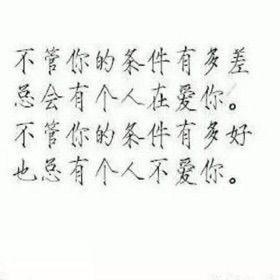 不管你的条件有多差
总会有个人在爱你。
不管你的条件有多好
也总有个人不爱你。